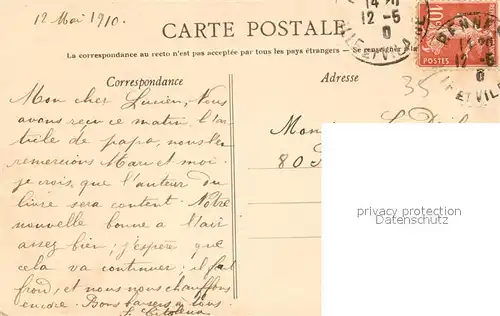 12 Mai 1910.
CARTE POSTALE
La correspondance au recto n'est pas acceptée par tous les pays étrangers — Se renseigner à la
Correspondance
Adresse
Mon cher Lucien, Nous
avons reçu ce matin l'ar-
ticle de papa, nous l'en
remercions Marc et moi.
je crois, que l'auteur du
livre sera content. Notre
nouvelle bonne a l'air
assez bien; j'espère que
cela va continuer; il fait
froid, et nous nous chauffons
encore. Bons baisers à tous.
Mon
80
35
RENNES
12-5
10
ILLE ET VILAINE
POSTES
privacy protection
Datenschutz